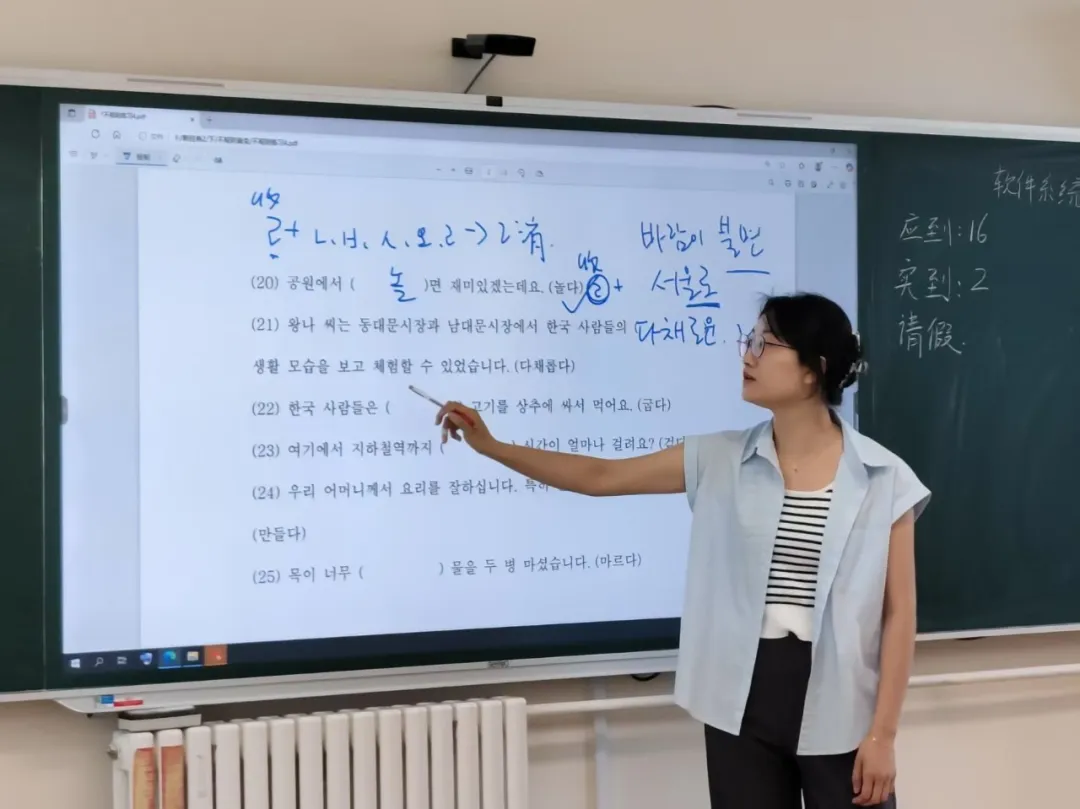 收
ㄹ+ ㄴ,ㅂ,ㅅ,오,ㄹ->ㄹ没有.
바람이 불면
(20) 공원에서 ( 놀 )면 재미있겠는데요. (놀다)
收
ㄹ + 서울로
(21) 왕나 씨는 동대문시장과 남대문시장에서 한국 사람들의
다채로운.
생활 모습을 보고 체험할 수 있었습니다. (다채롭다)
(22) 한국 사람들은 ( 고기를 상추에 싸서 먹어요. (굽다)
(23) 여기에서 지하철역까지 ( ) 시간이 얼마나 걸려요?
(24) 우리 어머니께서 요리를 잘하십니다. 특히
(만들다)
(25) 목이 너무 ( ) 물을 두 병 마셨습니다. (마르다)
软件系统
应到:16
实到:2
请假.